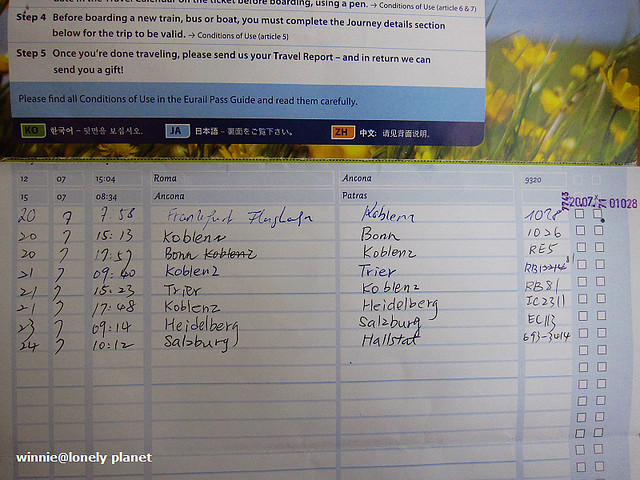 date in the Travel Calendar on the ticket before boarding, using a pen. → Conditions of Use (article 6 & 7)
Step 4 Before boarding a new train, bus or boat, you must complete the Journey details section
below for the trip to be valid. → Conditions of Use (article 5)
Step 5 Once you're done traveling, please send us your Travel Report – and in return we can
send you a gift!
Please find all Conditions of Use in the Eurail Pass Guide and read them carefully.
KO 한국어 - 뒷면을 보십시오. JA 日本語 - 裏面をご覧下さい。 ZH 中文: 请见背面说明.
12 07 15:04 Roma Ancona 9320
15 07 08:34 Ancona Patras
20.07. 01028
20 7 7.58 Frankfurt Flughafn Koblenz
20 7 15:13 Koblenz Bonn 1026
20 7 17:57 Bonn Koblenz Koblenz RE5
21 7 09:40 Koblenz Trier
21 7 15:23 Trier Koblenz RB81
21 7 17:48 Koblenz Heidelberg IC2311
23 7 09:14 Heidelberg Salzburg EC113
24 7 10:12 Salzburg Hallstat 693-3414
winnie@lonely planet